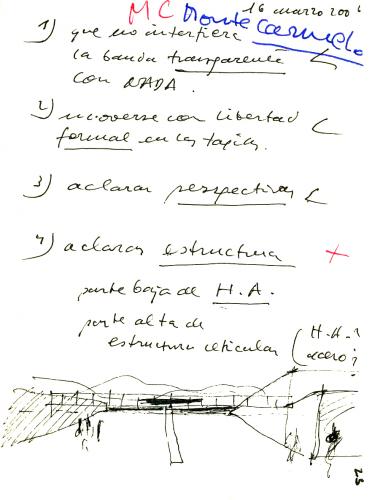 16 marzo 200
MC Monte Carmelo
1) que no interfiera
la banda transparente
con NADA.
2) moverse con libertad
formal en las tapias.
3) aclarar perspectivas
4) aclarar estructura
parte baja de H.A.
parte alta de
estructura reticular
H.A.?
acero?
25